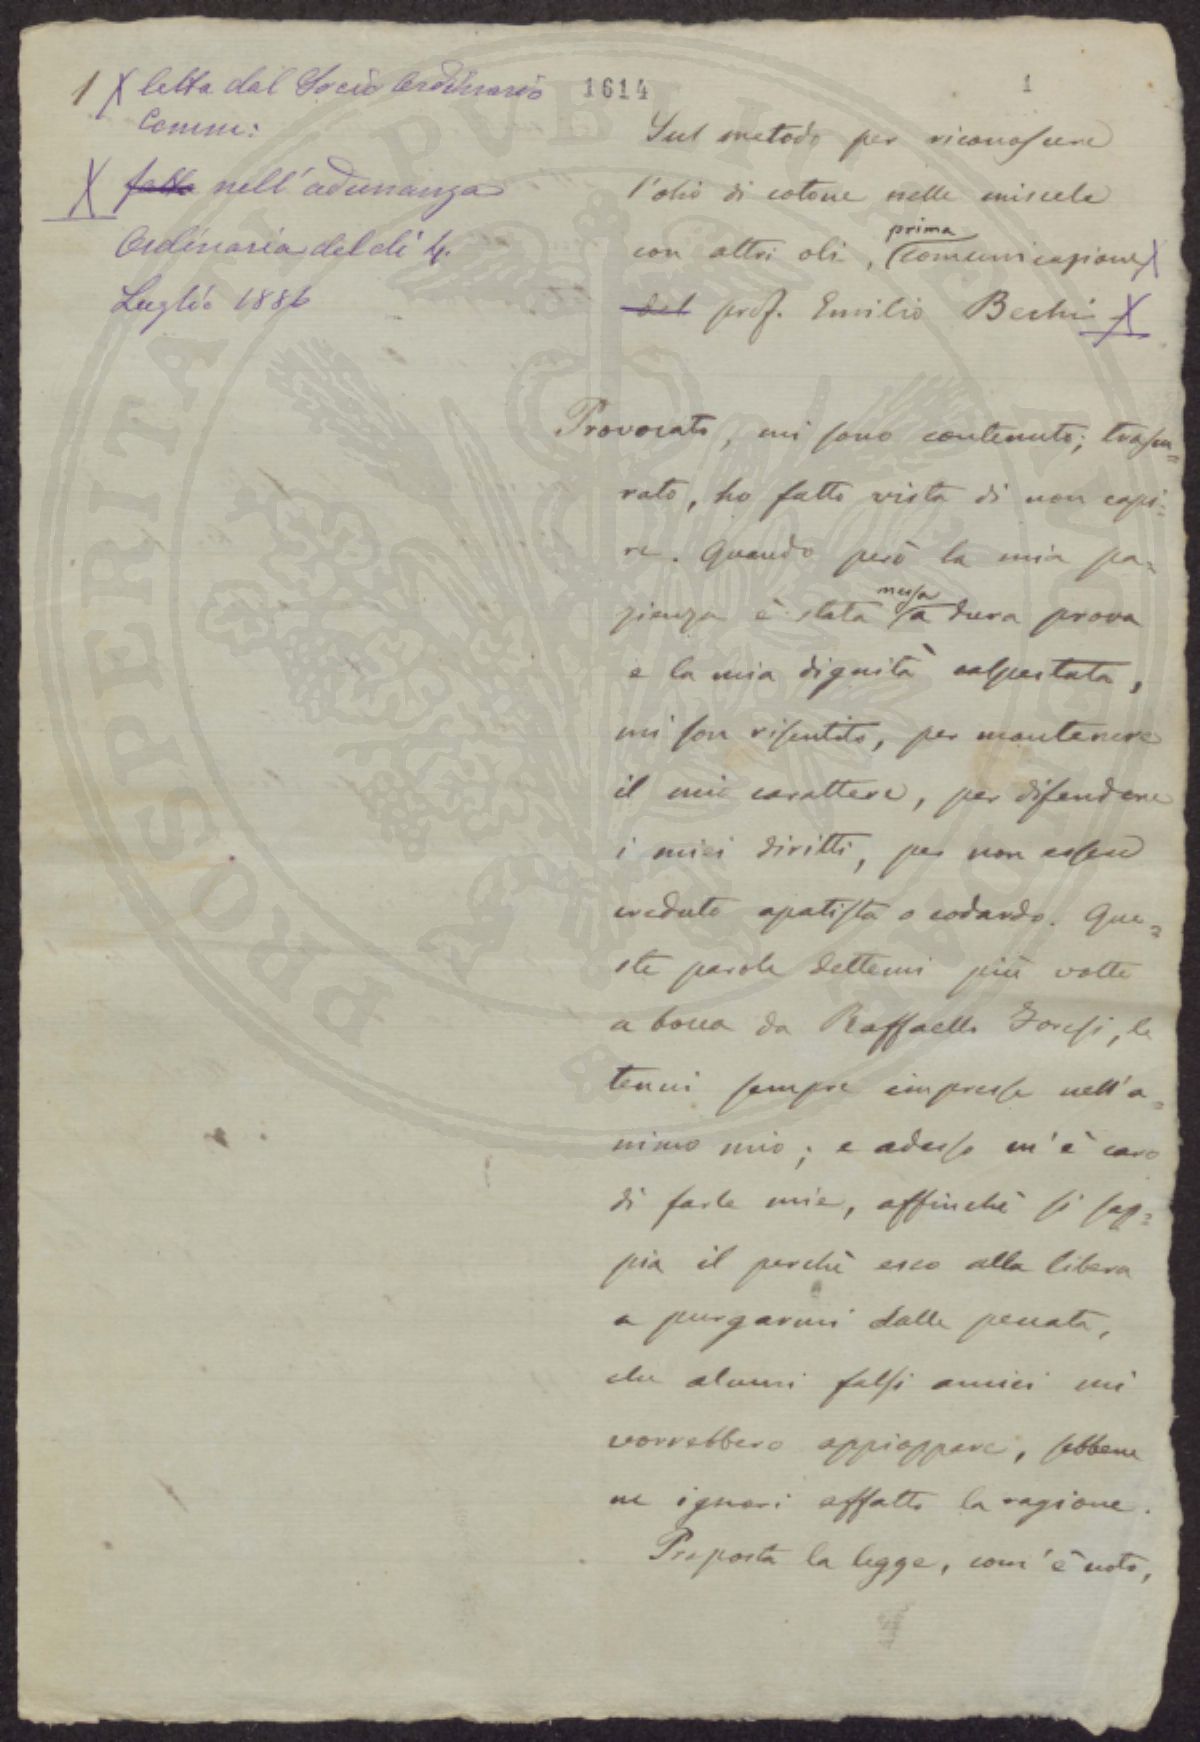 1 X letta dal Socio Ordinario
Comm:
X fatta nell'adunanza
Ordinaria del dì 4.
Luglio 1886
1614
1
Sul metodo per riconoscere
l'olio di cotone nelle miscele
con altri oli, prima comunicazione X
del prof. Emilio Bechi X
Provocato, mi sono contenuto; trascu=
rato, ho fatto vista di non capi=
re. Quando però la mia pa=
zienza è stata messa a dura prova
e la mia dignità calpestata,
mi son risentito, per mantenere
il mio carattere, per difendere
i miei diritti, per non essere
creduto apatista o codardo. Que=
ste parole dettemi più volte
a bocca da Raffaello Foresi, le
tenni sempre impresse nell'a=
nimo mio; e adesso m'è caro
di farle mie, affinchè si sap=
pia il perchè esco alla libera
a purgarmi dalle peccata,
che alcuni falsi amici mi
vorrebbero appioppare, sebbene
ne ignori affatto la ragione.
Proposta la legge, com'è noto,
PROSPERITATI PVBLICAE AVGENDAE